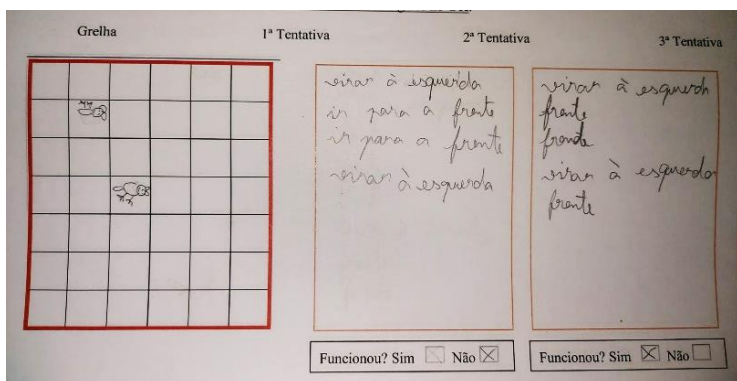 Grelha
1ª Tentativa
2ª Tentativa
3ª Tentativa
virar à esquerda
ir para a frente
ir para a frente
virar à esquerda
Funcionou? Sim Não
virar à esquerda
frente
frente
virar à esquerda
frente
Funcionou? Sim Não